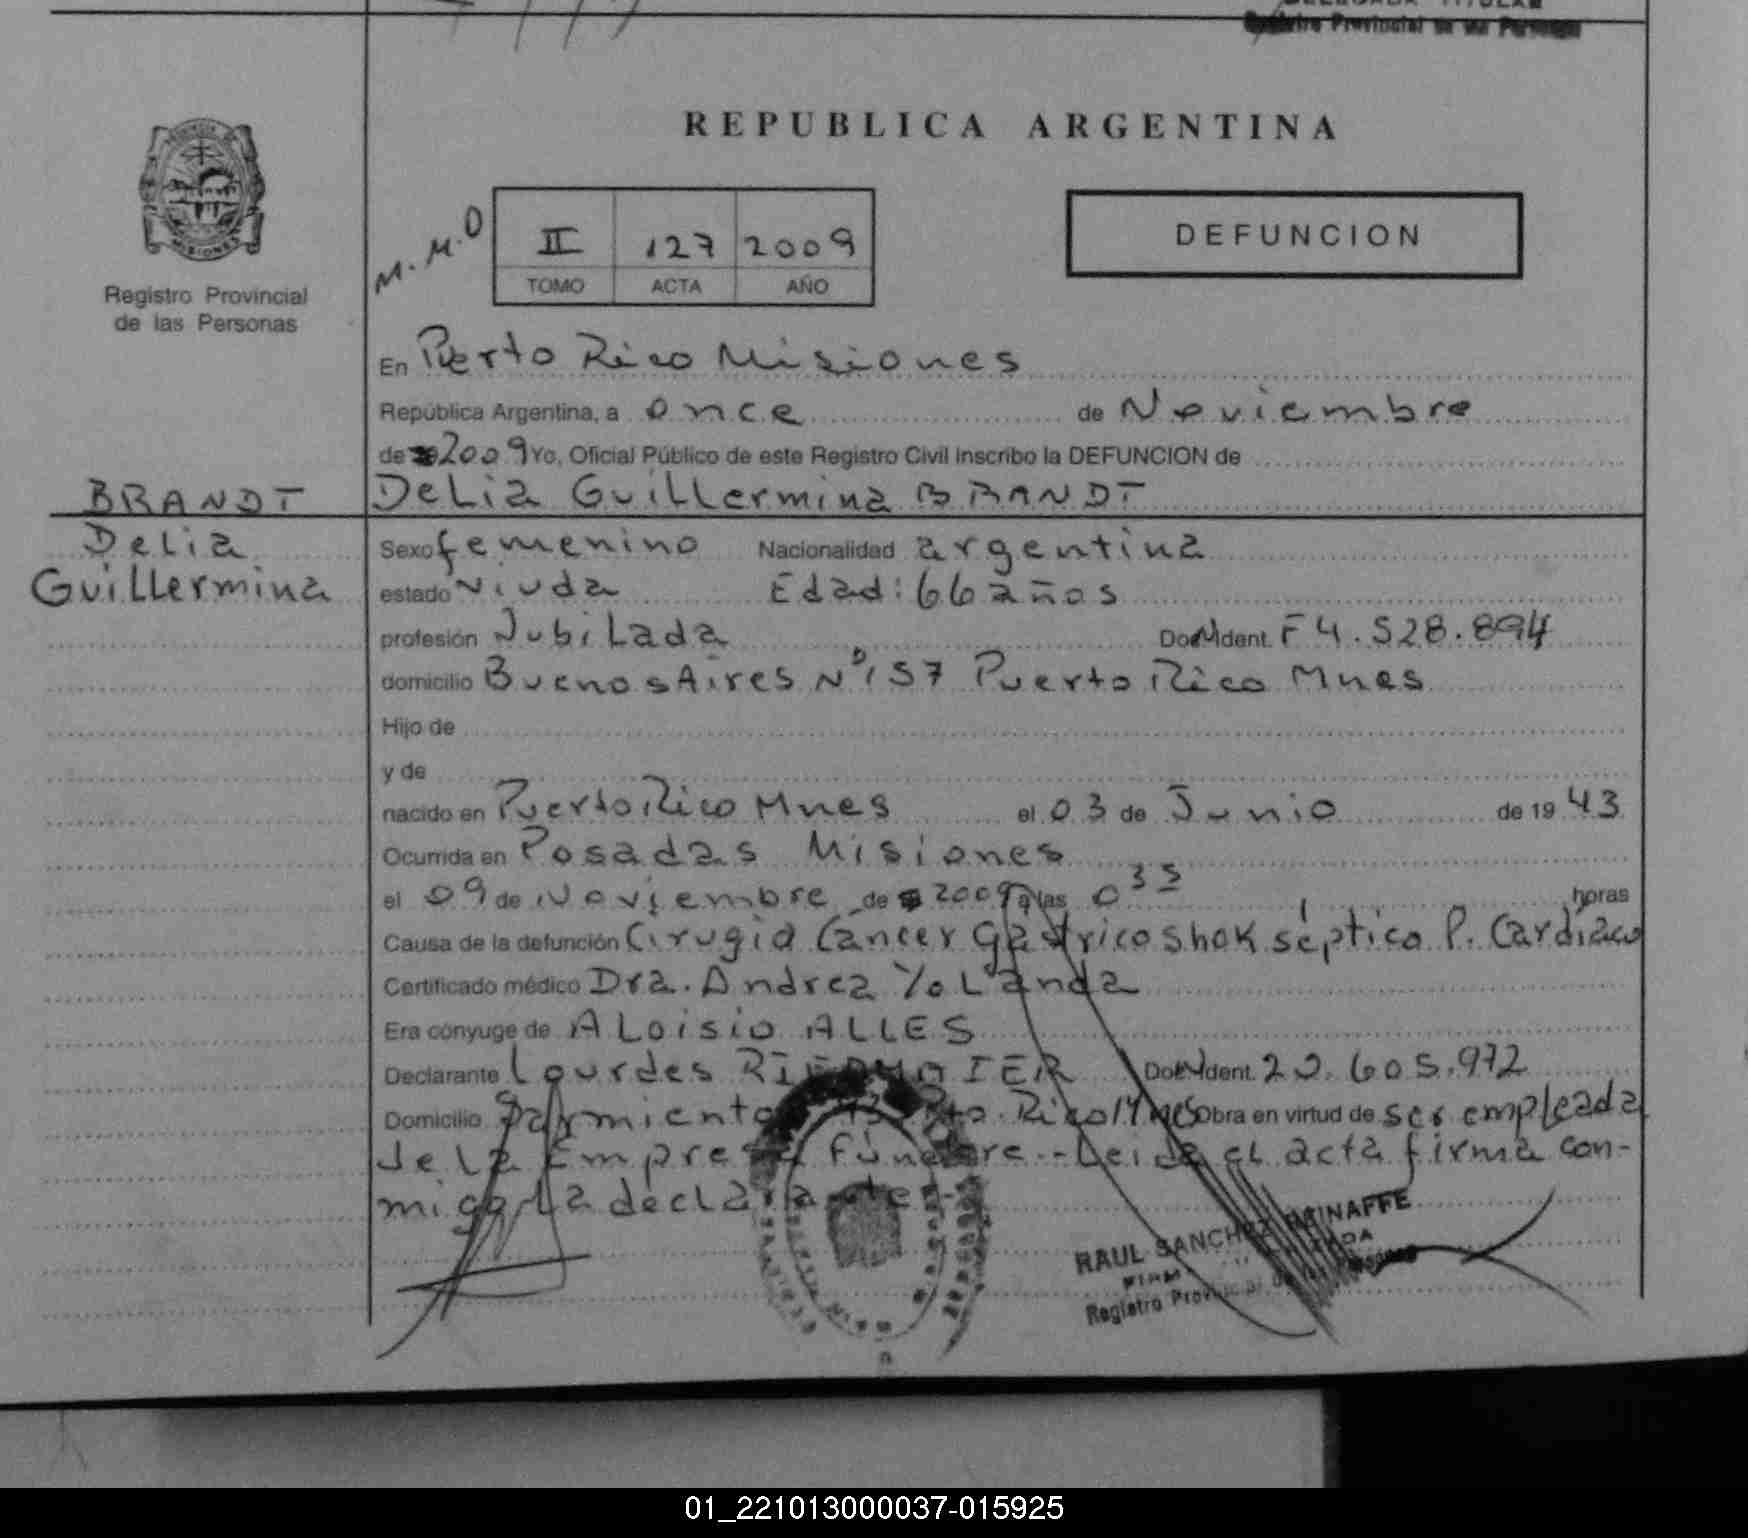 DELEGADA TITULAR
Registro Provincial de las Personas
REPUBLICA ARGENTINA
MISIONES
Registro Provincial
de las Personas
M.M.O
II 127 2009
TOMO ACTA AÑO
DEFUNCION
En Puerto Rico Misiones
República Argentina, a once de Noviembre
de 2009 Yo, Oficial Público de este Registro Civil inscribo la DEFUNCION de
BRANDT Delia Guillermina
Delia Guillermina BRANDT
Sexo femenino Nacionalidad argentina
estado viuda Edad: 66 años
profesión Jubilada Doc. Ident. F 4.528.894
domicilio Buenos Aires Nº 157 Puerto Rico Mnes
Hijo de
y de
nacido en Puerto Rico Mnes el 03 de Junio de 19 43
Ocurrida en Posadas Misiones
el 09 de Noviembre de 2009 a las 0 35 horas
Causa de la defunción Cirugia Cancer gástrico shok séptico P. Cardíaco
Certificado médico Dra. Andrea Yolanda
Era cónyuge de ALoisio ALLES
Declarante Lourdes Doc. Ident. 20.605.972
Domicilio Sarmiento Pto. Rico Mnes Obra en virtud de ser empleada
de la Empresa Fúnebre.- Leida el acta firma con-
migo la declarante.-
RAUL SANCHEZ
Registro Provincial de las Personas
01_221013000037-015925